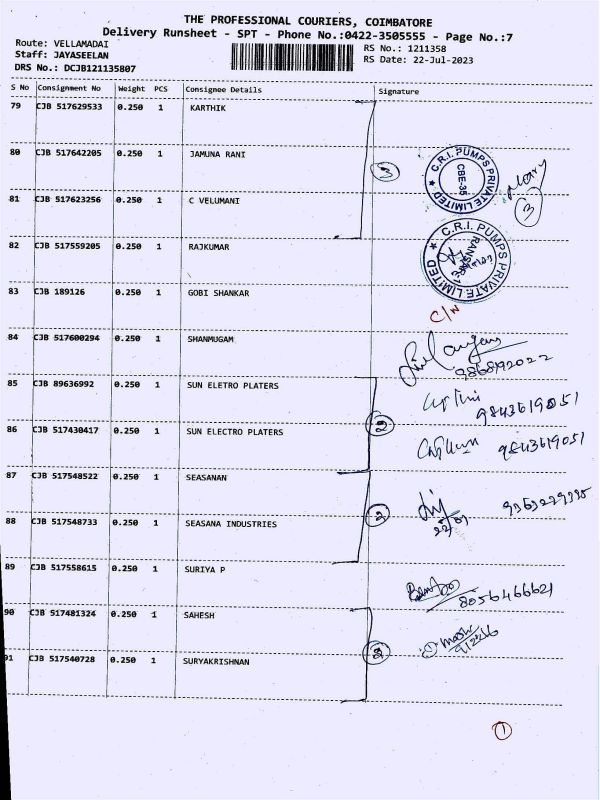 THE PROFESSIONAL COURIERS, COIMBATORE
Delivery Runsheet - SPT - Phone No.:0422-3505555 - Page No.:7
Route: VELLAMADAI
Staff: JAYASEELAN
DRS No.: DCJB121135807
RS No.: 1211358
RS Date: 22-Jul-2023
S No Consignment No Weight PCS Consignee Details Signature
79 CJB 517629533 0.250 1 KARTHIK
80 CJB 517642205 0.250 1 JAMUNA RANI
3
C.R.I. PUMPS PRIVATE LIMITED ★
CBE-35
3
81 CJB 517623256 0.250 1 C VELUMANI
82 CJB 517559205 0.250 1 RAJKUMAR
C.R.I. PUMPS PRIVATE LIMITED ★
83 CJB 189126 0.250 1 GOBI SHANKAR
C/N
84 CJB 517600294 0.250 1 SHANMUGAM
85 CJB 89636992 0.250 1 SUN ELETRO PLATERS
9843619051
2
86 CJB 517430417 0.250 1 SUN ELECTRO PLATERS
9843619051
87 CJB 517548522 0.250 1 SEASANAN
2
22/07
88 CJB 517548733 0.250 1 SEASANA INDUSTRIES
89 CJB 517558615 0.250 1 SURIYA P
8056466621
90 CJB 517481324 0.250 1 SAHESH
2
91 CJB 517540728 0.250 1 SURYAKRISHNAN
1